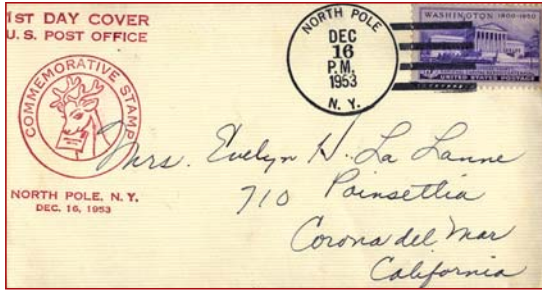 1ST DAY COVER
U.S. POST OFFICE
COMMEMORATIVE STAMP
NORTH POLE, N.Y.
DEC. 16, 1953
NORTH POLE
DEC
16
P.M.
1953
N. Y.
WASHINGTON 1800-1950
UNITED STATES POSTAGE
Mrs. Evelyn H. La Lanne
710 Poinsettia
Corona del Mar
California